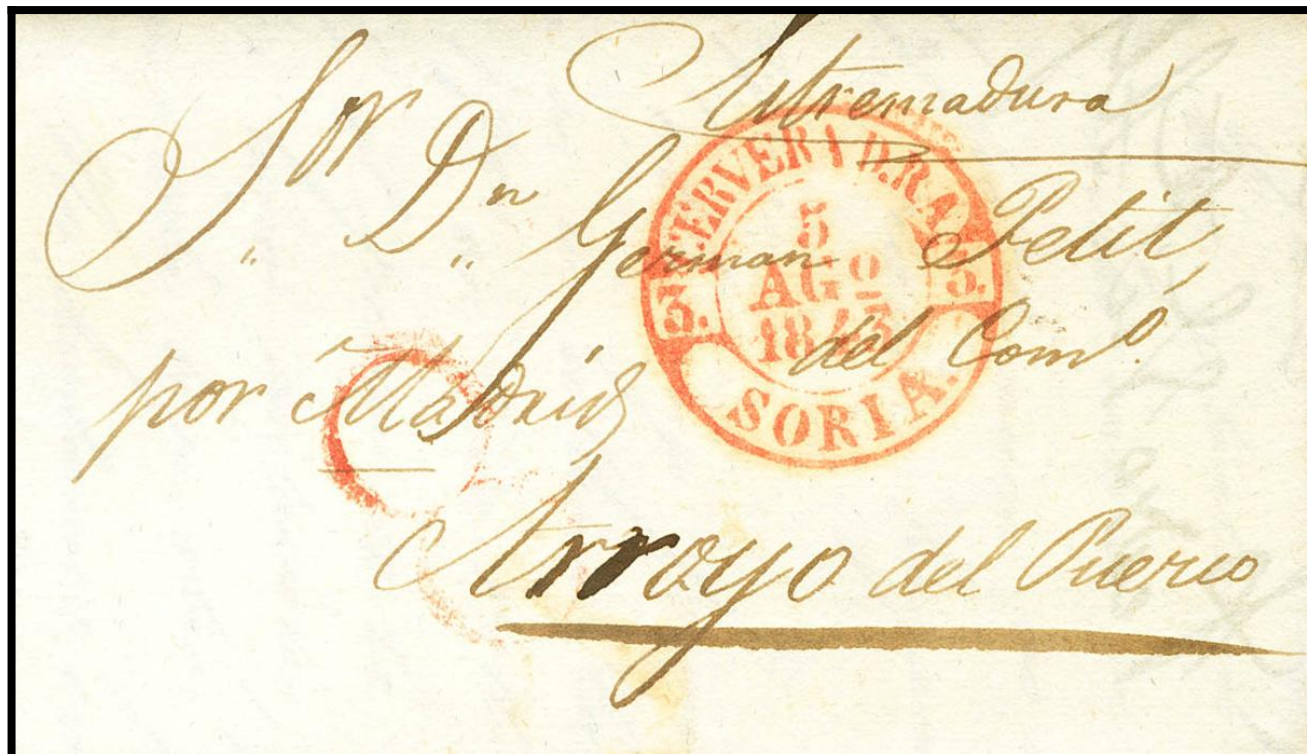 Estremadura
S.or D.n German Petit,
del Com.o
por Madrid
Arroyo del Puerco
CERVERA D.R.A.
3. 3.
5
AGO
1843
SORIA.